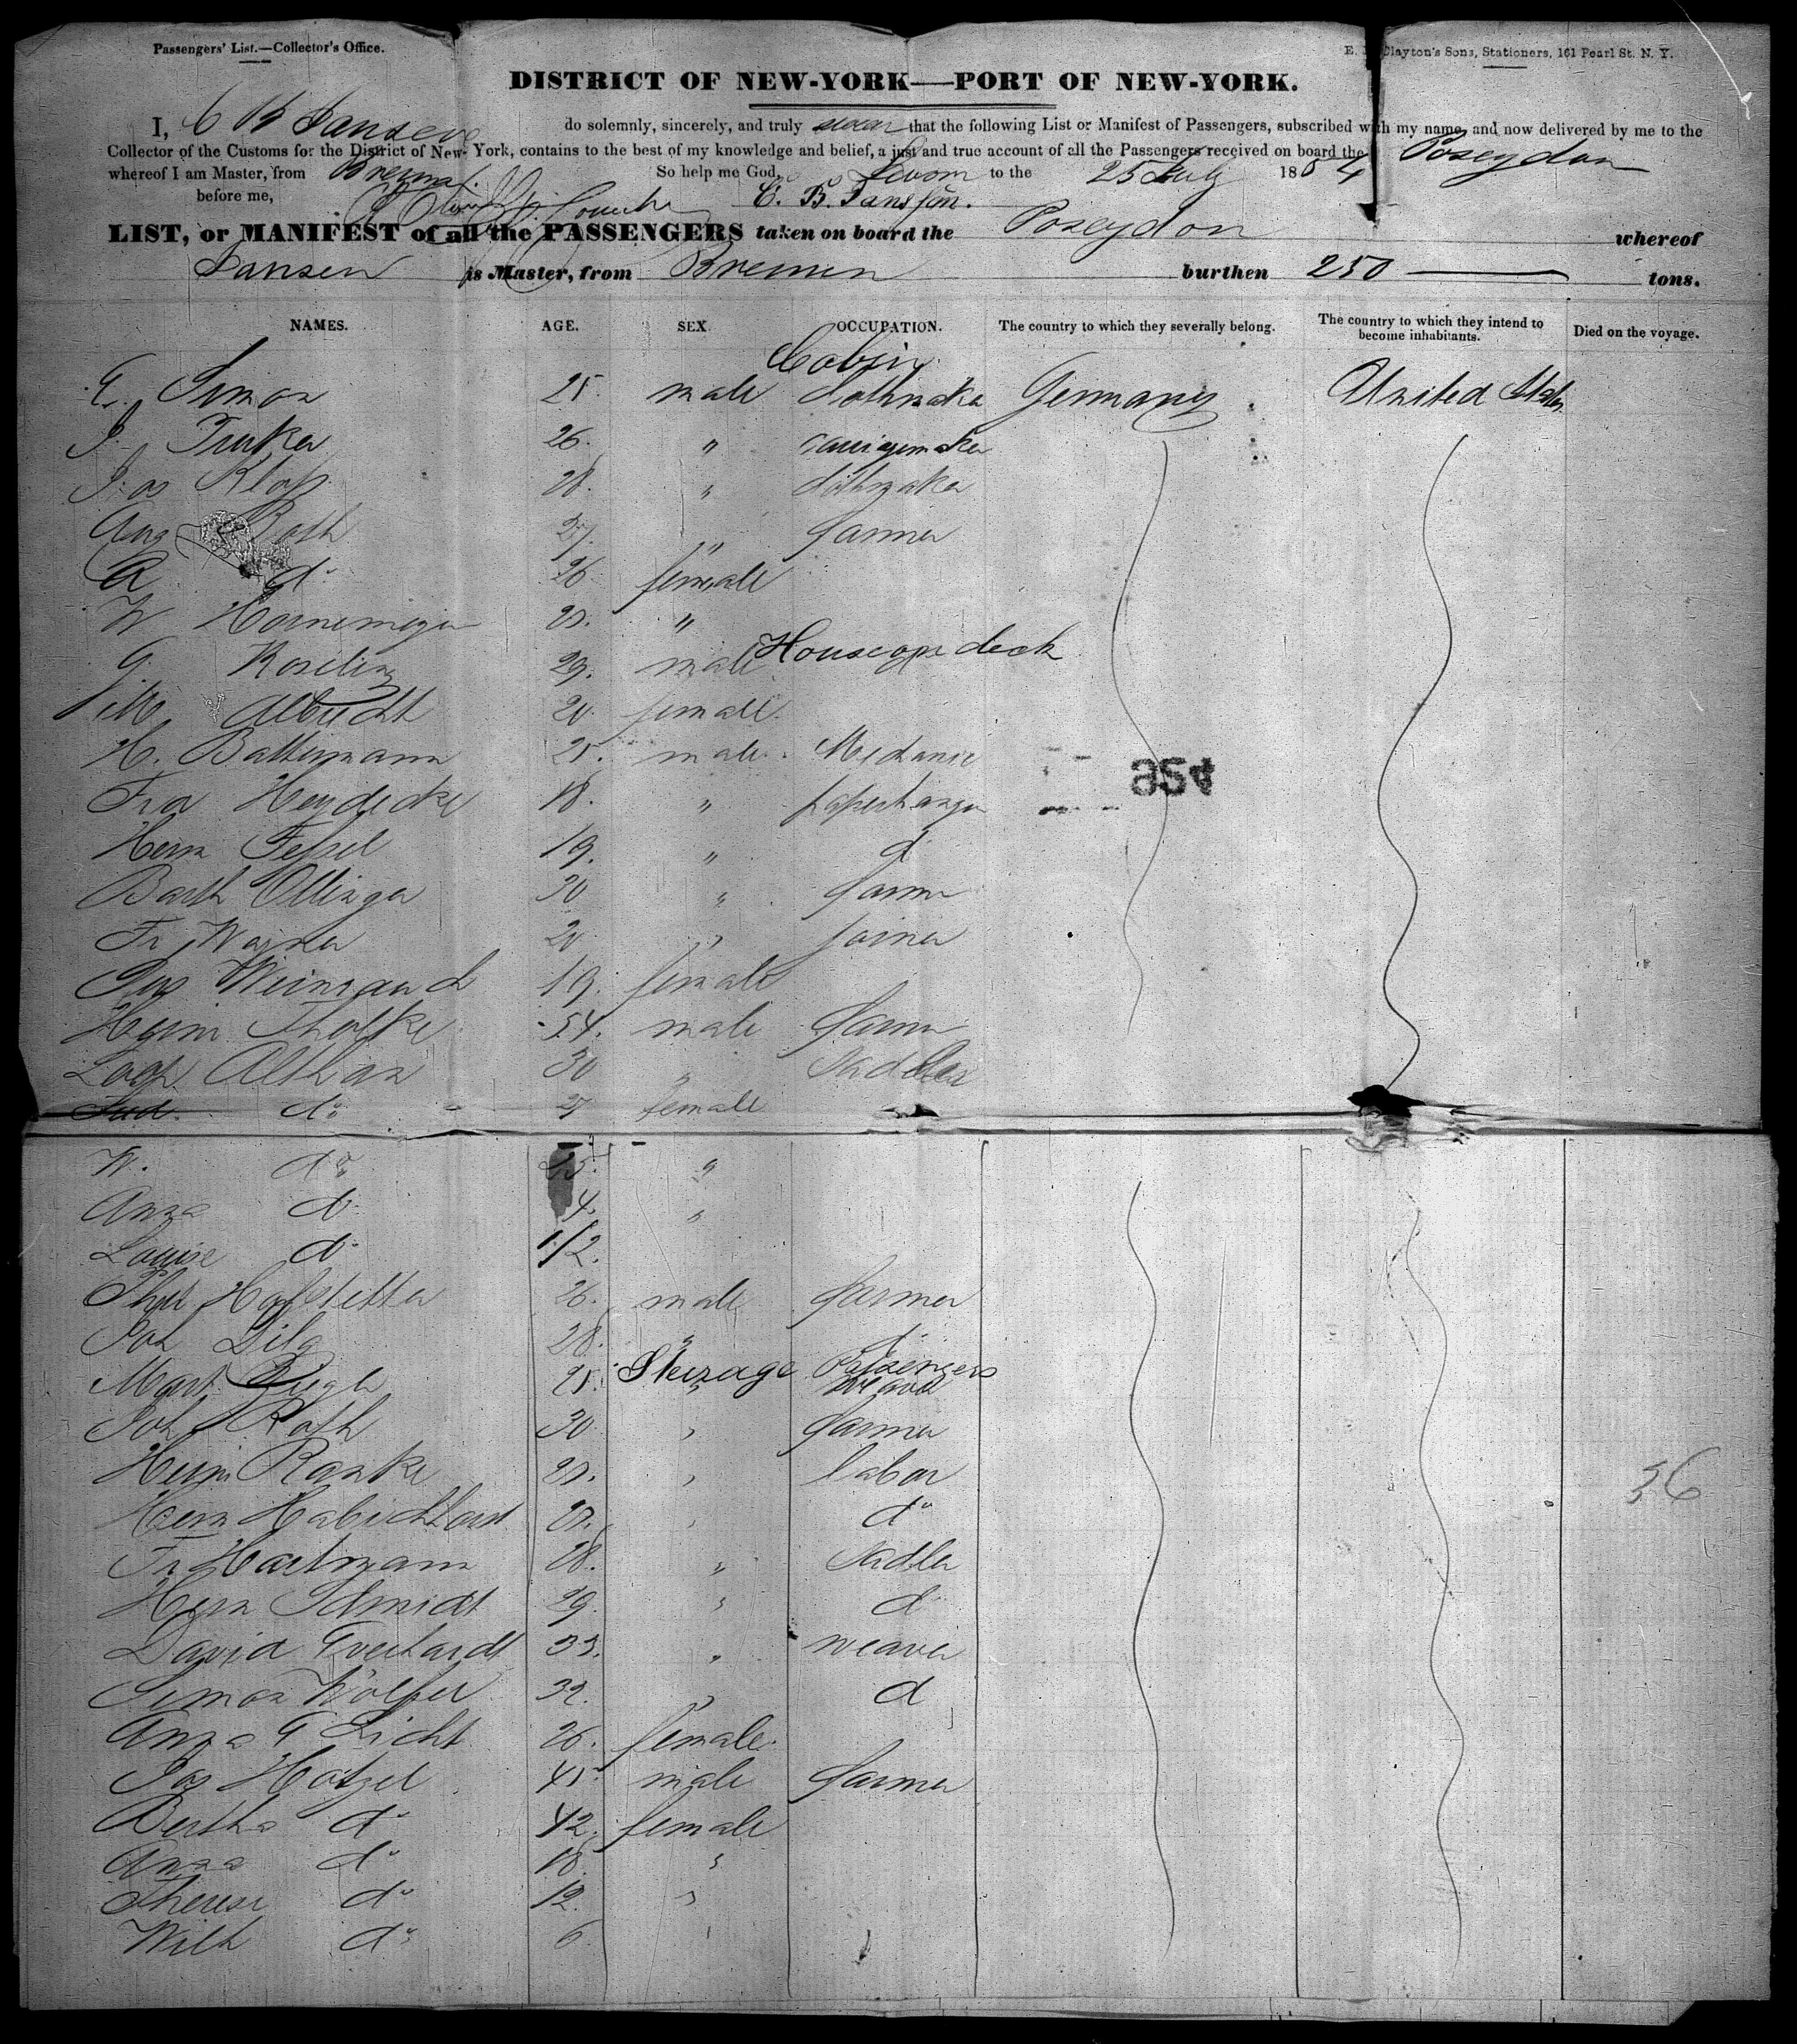 Passengers' List.—Collector's Office.
E. Clayton's Sons, Stationers, 161 Pearl St. N. Y.
DISTRICT OF NEW-YORK—PORT OF NEW-YORK.
I, C B Janssen do solemnly, sincerely, and truly swear that the following List or Manifest of Passengers, subscribed with my name, and now delivered by me to the
Collector of the Customs for the District of New-York, contains to the best of my knowledge and belief, a just and true account of all the Passengers received on board the Poseydon
whereof I am Master, from Bremen. So help me God, Sworn to the 25 July 1854
before me, C. B. Jansson.
LIST, or MANIFEST of all the PASSENGERS taken on board the Poseydon whereof
Jansen is Master, from Bremen burthen 250 tons.
NAMES. AGE. SEX. OCCUPATION. The country to which they severally belong. The country to which they intend to become inhabitants. Died on the voyage.
Cabin
E. Simon 25. male Clothmaker Germany United States
J. 26. " carriagemaker
Jos Klop 28. " Clothmaker
Aug Roth 27. " farmer
R do 26 female
W Hornemeyer 20. "
Houseon deck
G. Roseling 29. male
M. Albrecht 20. female
H. Battermann 25. male Mechanic
354
Fra Heydecke 18. " paperhanger
Herm Fessel 19. " do
Barth Ollinger 30 " farmer
Fr Wagner 20 " joiner
Jos Weinrauch 19. female
Heyni Tholke 54. male farmer
Althan 30 " Saddler
do 27 female
W. do 25. "
Anna do 4. "
Louise do 1/2.
Hofstetter 26. male farmer
Joh Dilg 28. " do
Steerage Passengers
Mart 25. " weaver
Joh Roth 30 " farmer
Heinr Ranke 20. " labor
Herm Habichthorst 20. " do
Fr Hartmann 28. " Sadler
Herm Schmidt 29. " do
David Everhardt 33. " weaver
Simon Wolfer 32. " do
Anna E Licht 26. female
Jos Hotzel 45. male farmer
Bertha do 42. female
Anna do 18. "
Therese do 12. "
Wilh do 6. "
36